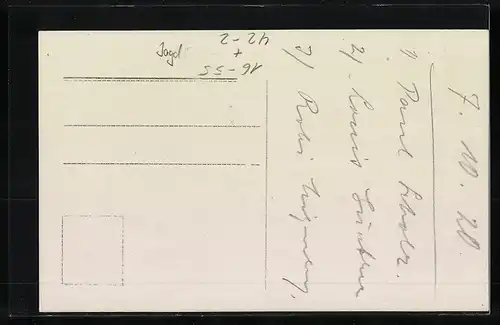 Jagd
42-2
+
16-55
7. 10. 20.
1) Paul Scholz.
2) Louis
3) Robi